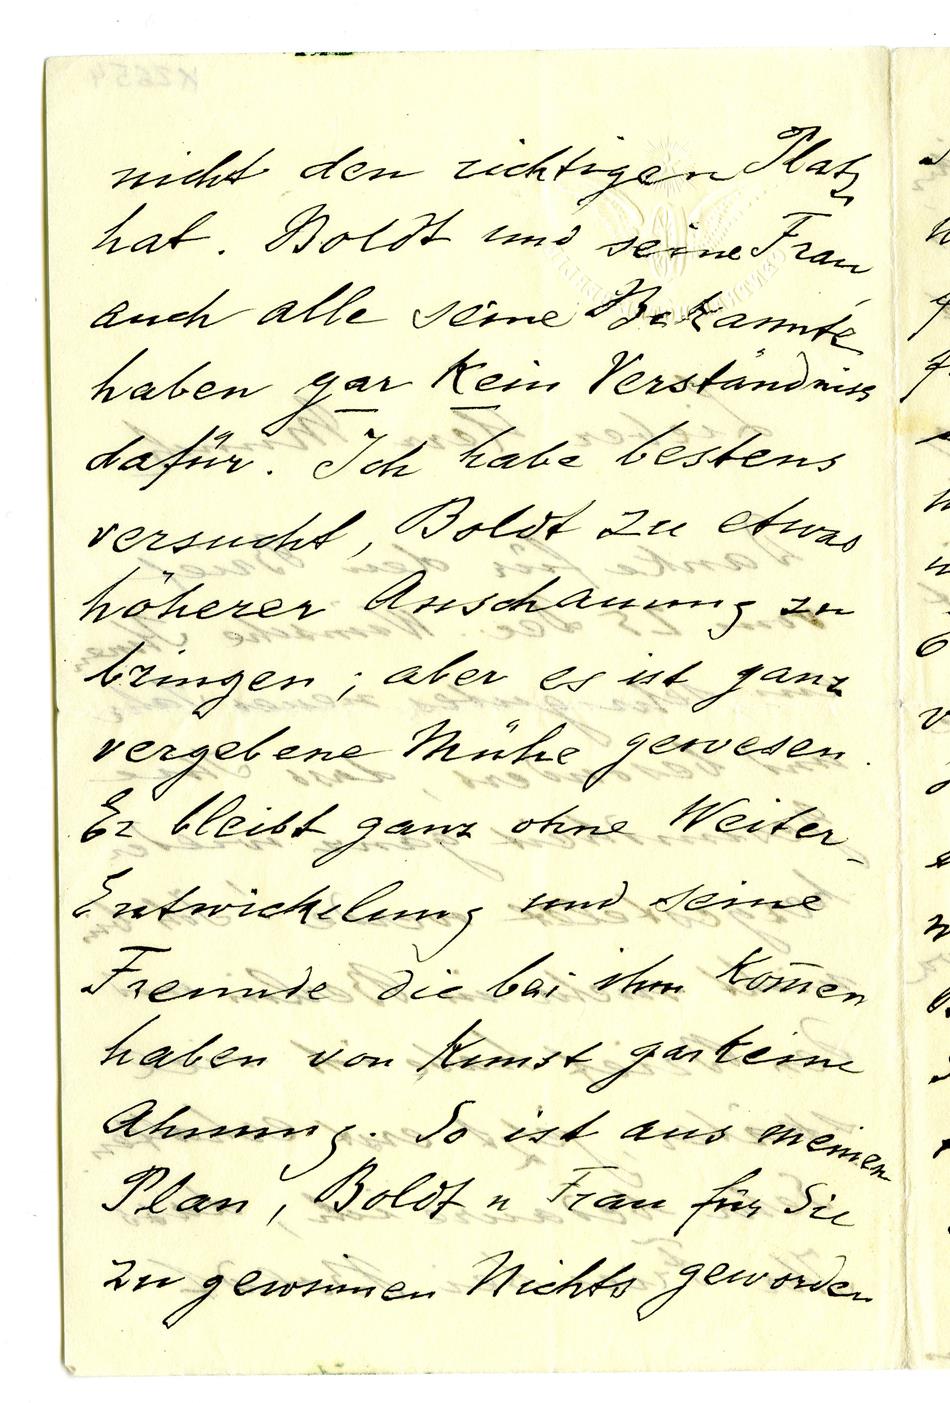 nicht den richtigen Platz
hat. Boldt und seine Frau
auch alle seine Bekannte
haben gar kein Verständniss
dafür. Ich habe bestens
versucht, Boldt zu etwas
höherer Anschauung zu
bringen; aber es ist ganz
vergebene Mühe gewesen.
Er bleibt ganz ohne Weiter-
Entwickelung und seine
Freunde die bei ihm kom̅en
haben von Kunst garkeine
Ahnung. So ist aus meinem
Plan, Boldt u Frau für Sie
zu gewinnen Nichts geworden